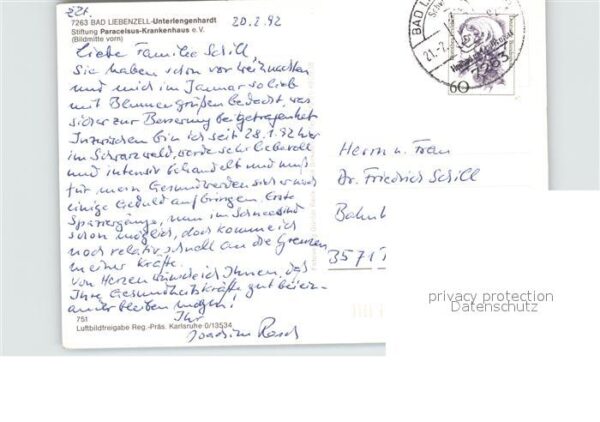 z.Zt.
7263 BAD LIEBENZELL-Unterlengenhardt
Stiftung Paracelsus-Krankenhaus e.V.
(Bildmitte vorn)
20.2.92
Liebe Familie Schill
Sie haben schon vor Weihnachten
und mich im Januar so lieb
mit Blumengrüßen bedacht, was
sicher zur Besserung beigetragen hat
Inzwischen bin ich seit 28.1.92 hier
im Schwarzwald, werde sehr liebevoll
und intensiv behandelt und muß
für mein Gesundwerden sicher noch
einige Geduld aufbringen. Erste
Spaziergänge, nun im Schnee sind
schon möglich, doch komme ich
noch relativ schnell an die Grenzen
meiner Kräfte.
Von Herzen wünsche ich Ihnen, daß
Ihre Gesundheitskräfte gut beiein-
ander bleiben mögen!
Ihr
Joachim
751
Luftbildfreigabe Reg.-Präs. Karlsruhe 0/13534
BAD L
21.2.
7263
60
Herrn u. Frau
Dr. Friedrich Schill
Bahn
3571
privacy protection
Datenschutz